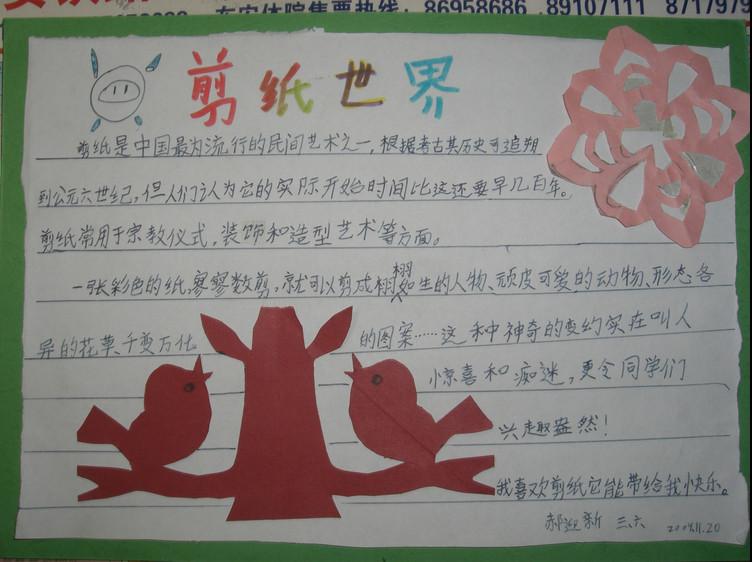 东安体院售票热线: 86958686 89107111 8717979
剪纸世界
剪纸是中国最为流行的民间艺术之一,根据考古其历史可追朔
到公元六世纪,但人们认为它的实际开始时间比这还要早几百年。
剪纸常用于宗教仪式,装饰和造型艺术等方面。
一张彩色的纸,寥寥数剪,就可以剪成栩栩如生的人物、顽皮可爱的动物、形态各
异的花草、千变万化的图案……这种神奇的变幻实在叫人
惊喜和痴迷,更令同学们
兴趣盎然!
我喜欢剪纸它能带给我快乐。
郝迎新 三六 2009.11.20